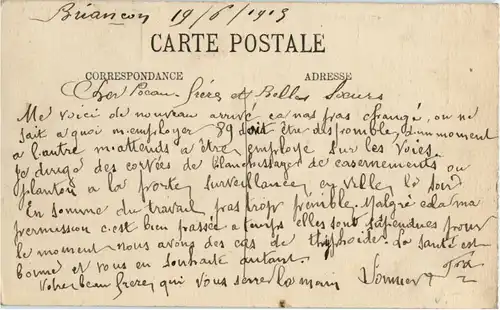 Briançon 19/6/1913
CARTE POSTALE
CORRESPONDANCE ADRESSE
Cher Beau frère et Belles Sœurs
Me voici de nouveau arrivé ca nas pas changé, on ne
sait a quoi m.employer 89 doit être des d'un moment
a l.autre m.attends a être employé sur les voies.
je dirige des corvées de blanchissages de casernements ou
planton a la porte, surveillance en ville le soir
En somme du travail pas trop pénible. Malgré cela ma
permission c.est bien passée a temps elles sont supendues pour
le moment nous avons des cas de thyphoïde. La santé est
bonne et vous en souhaite autant.
Votre beau frère qui vous serre la main